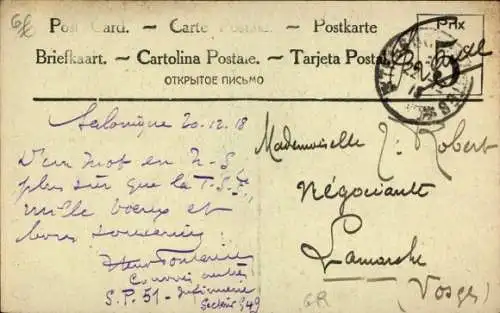 Post Card. — Carte Postale. — Postkarte
Prix
Briefkaart. — Cartolina Postale. — Tarjeta Postal
5
ОТКРЫТОЕ ПИСЬМО
Salonique 20.12.18
D'un mot en
plus sûr que la T.S.F.,
mille voeux et
bons souvenirs
S.P. 51 - Infirmerie
Secteur 549
Mademoiselle J. Robert
Négociante
Lamarche
(Vosges)
GR